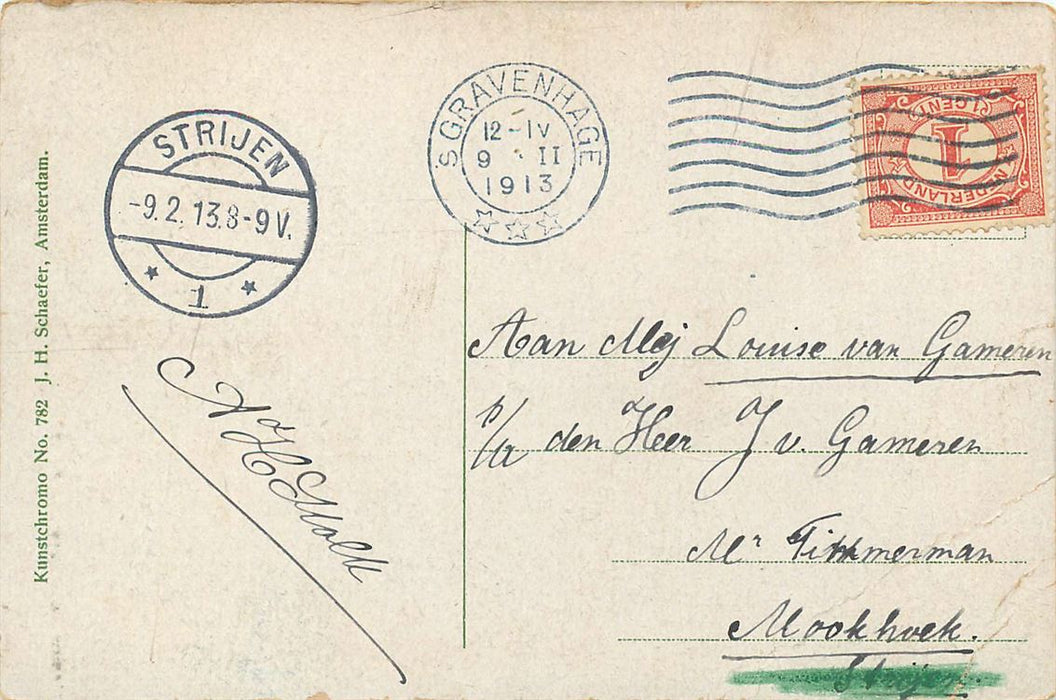 Kunstchromo No. 782 J. H. Schaefer, Amsterdam.
STRIJEN
-9.2.13.8-9V.
1
S GRAVENHAGE
12-IV
9 II
1913
1 CENT
1
NEDERLAND
Aan Mej Louise van Gameren
p/a den Heer J v. Gameren
Mr Timmerman
Mookhoek.
Strijen